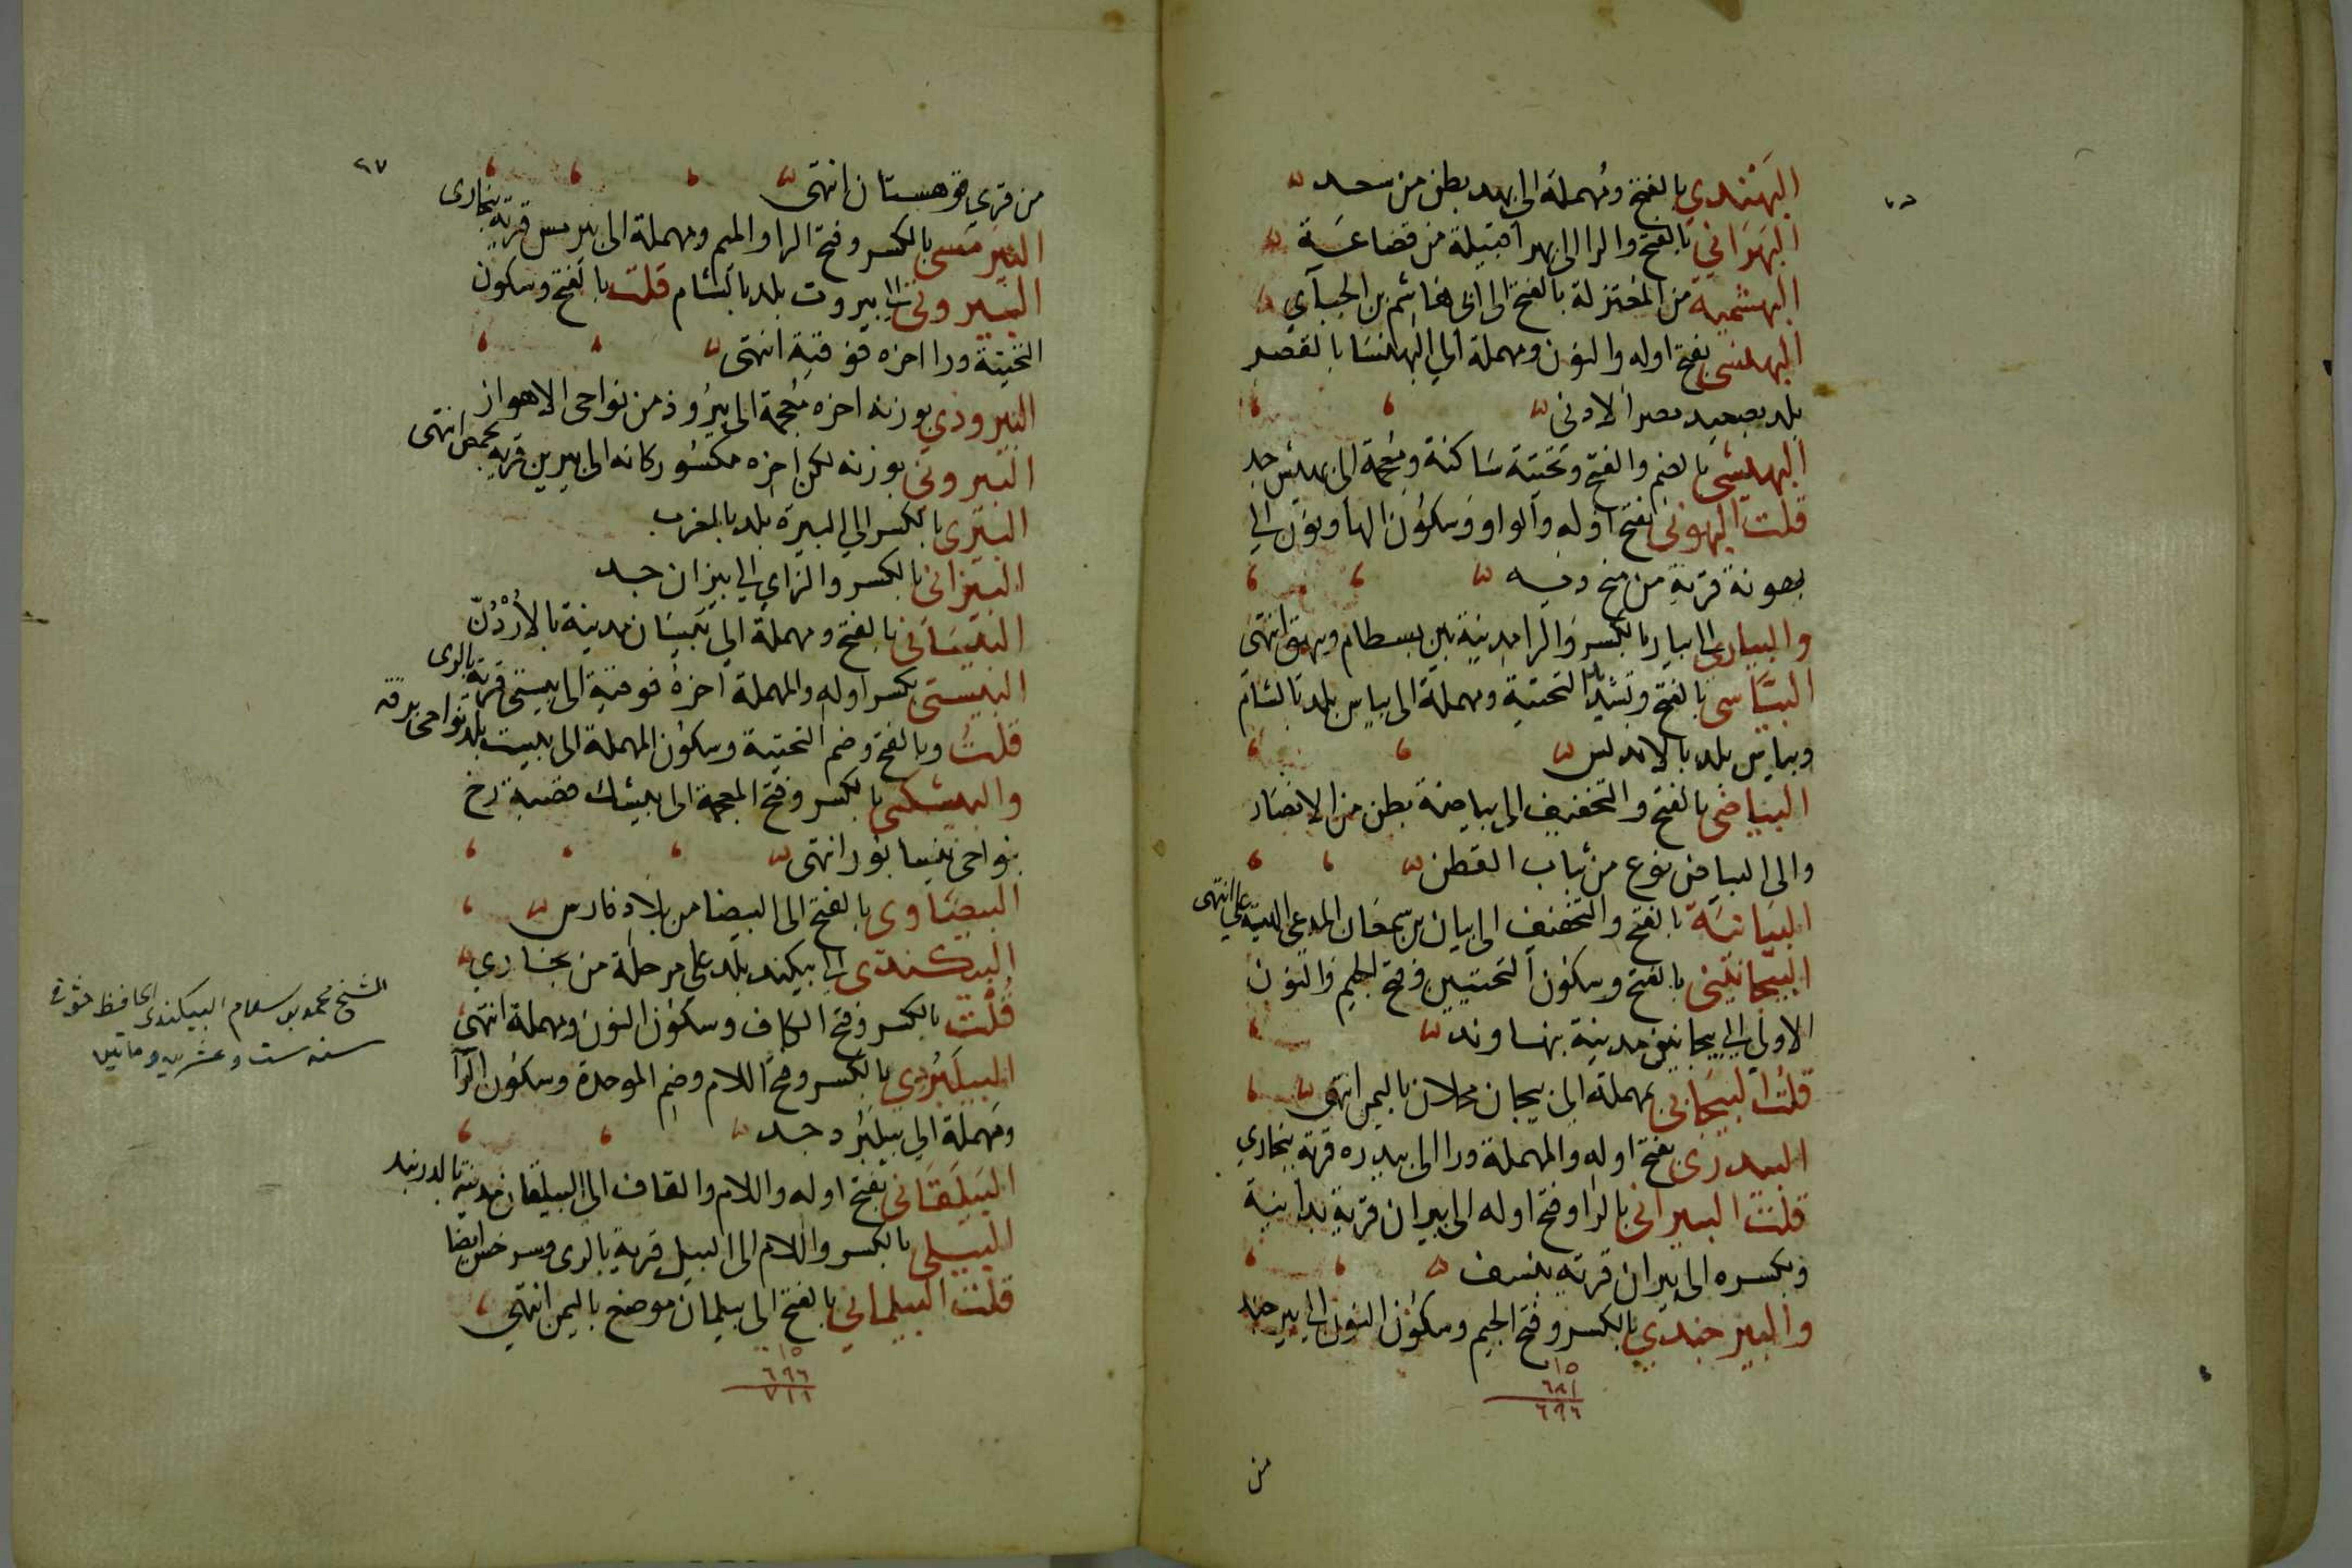 البهندي بالفتح ومهملة الى بهد بطن من سعد
البهراني بالفتح والرا الى بهرا قبيلة من قضاعة
البهشمية من المعتزلة بالفتح الى ابى هاشم بن الجبآي
البهنسى بفتح اوله والنون ومهملة الي البهنسا بالقصر
بلد بصعيد مصر الادنى
البهيشى بالضم والفتح وتحتية ساكنة ومعجمة الى بهيش جد
قلت البهونى بفتح اوله والواو وسكون الها ونون الي
بهونة قرية من
والبيارى الى بيار بالكسر والرا مدينة بين بسطام وبيهق انتهى
البياسى بالفتح وتشديد التحتية ومهملة الى بياس بلد بالشام
وبياس بلد بالاندلس
البياضى بالفتح والتخفيف الى بياضة بطن من الانصار
والى البياض نوع من ثياب القطن
البيانية بالفتح والتخفيف الى بيان بن سمعان المدعى الهية علي انتهى
البيجانينى بالفتح وسكون التحتيين وفتح الجيم والنون
الاولى الى بيجانين مدينة بنهاوند
قلت البيحاني بمهملة الى بيحان مخلاف باليمن انتهى
البيدرى بفتح اوله والمهملة ورا الى بيدره قرية ببخاري
قلت البيرانى بالرا وفتح اوله الى بيران قرية بدانية
وبكسره الى بيران قرية بنسف
والبيرجندي بالكسر وفتح الجيم وسكون النون الى بيرجند
١٥
٦٨١
٦٩٦
من
٦٧
من قري قوهستان انتهى
البيرمسى بالكسر وفتح الرا والميم ومهملة الى بيرمس قرية ببخارى
البيروتى الى بيروت بلد بالشام قلت بالفتح وسكون
التحتية ورا اخره فوقية انتهى
البيروذي بوزنه اخره معجمة الى بيروذ من نواحى الاهواز
البيرونى بوزنه لكن اخره مكسور كانه الى بيرين قرية بحمص انتهى
البيرى بالكسر الي البيرة بلد بالمغرب
البيزانى بالكسر والزاي الي بيزان جد
البيسانى بالفتح ومهملة الي بيسان مدينة بالأردن
البيستى بكسر اوله والمهملة اخره فوقية الى بيستى قرية بالرى
قلت وبالفتح وضم التحتية وسكون المهملة الى بيست بلد بنواحى برقه
والبيشكى بالكسر وفتح المعجمة الى بيشك قصبة رخ
بنواحى نيسابور انتهى
البيضاوى بالفتح الى البيضا من بلاد فارس
البيكندى الى بيكند بلد على مرحلة من بخاري
قلت بالكسر وفتح الكاف وسكون النون ومهملة انتهى
البيلبردي بالكسر وفتح اللام وضم الموحدة وسكون الرا
ومهملة الي بيلبرد جد
البيلقانى بفتح اوله واللام والقاف الى البيلقان مدينة بالدربند
البيلى بالكسر واللام الى البيل قرية بالرى وسرخس ايضا
قلت البيلماني بالفتح الى بيلمان موضع باليمن انتهي
١٥
٦٩٦
٧١١
الشيخ محمد بن سلام البيكندى الحافظ
سنه ست وعشرين وماتين